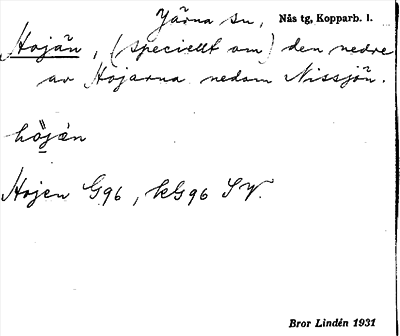 Järna sn, Nås tg, Kopparb. l.
Hojån, (speciellt om) den nedre
av Hojarna nedom Nissjön.
höjȧn
Hojen G96, kG96 SV.
Bror Lindén 1931